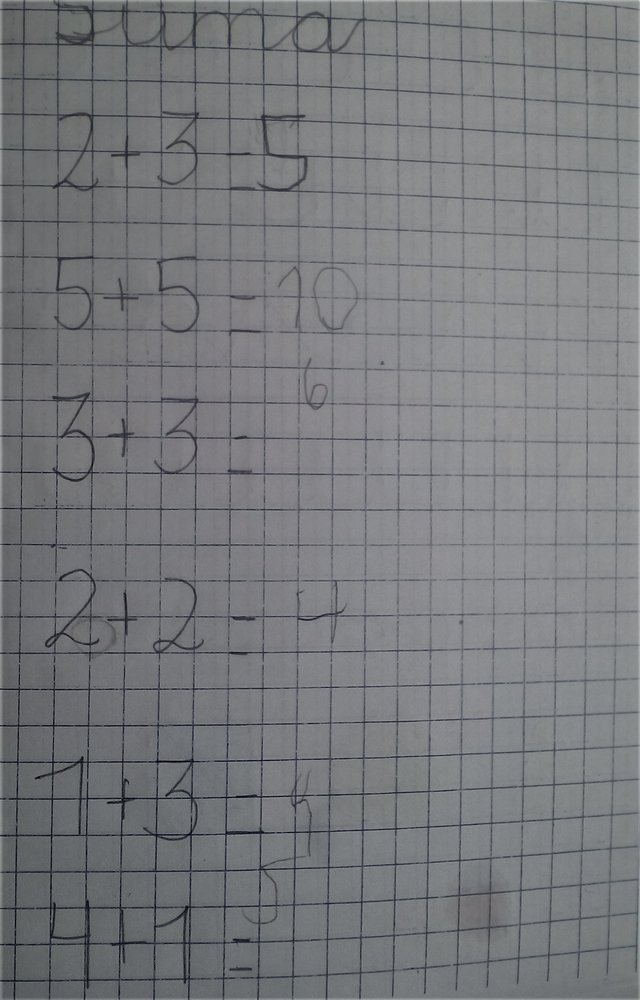 Suma
2 + 3 = 5
5 + 5 = 10
3 + 3 = 6
2 + 2 = 4
1 + 3 = 4
4 + 1 = 5